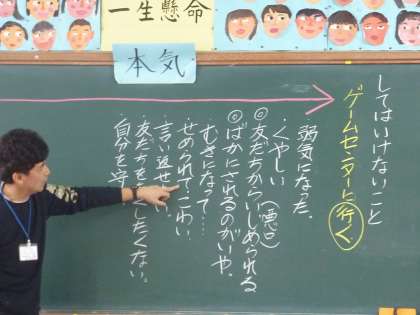 一生懸命
本気
してはいけないこと
ゲームセンターに行く
弱気になった。
・くやしい
◎友だちからいじめられる
（悪口）
◎ばかにされるのがいや。
むきになって…
・せめられてこわい。
・言い返せない。
・友だちを くしたくない。
・自分を守